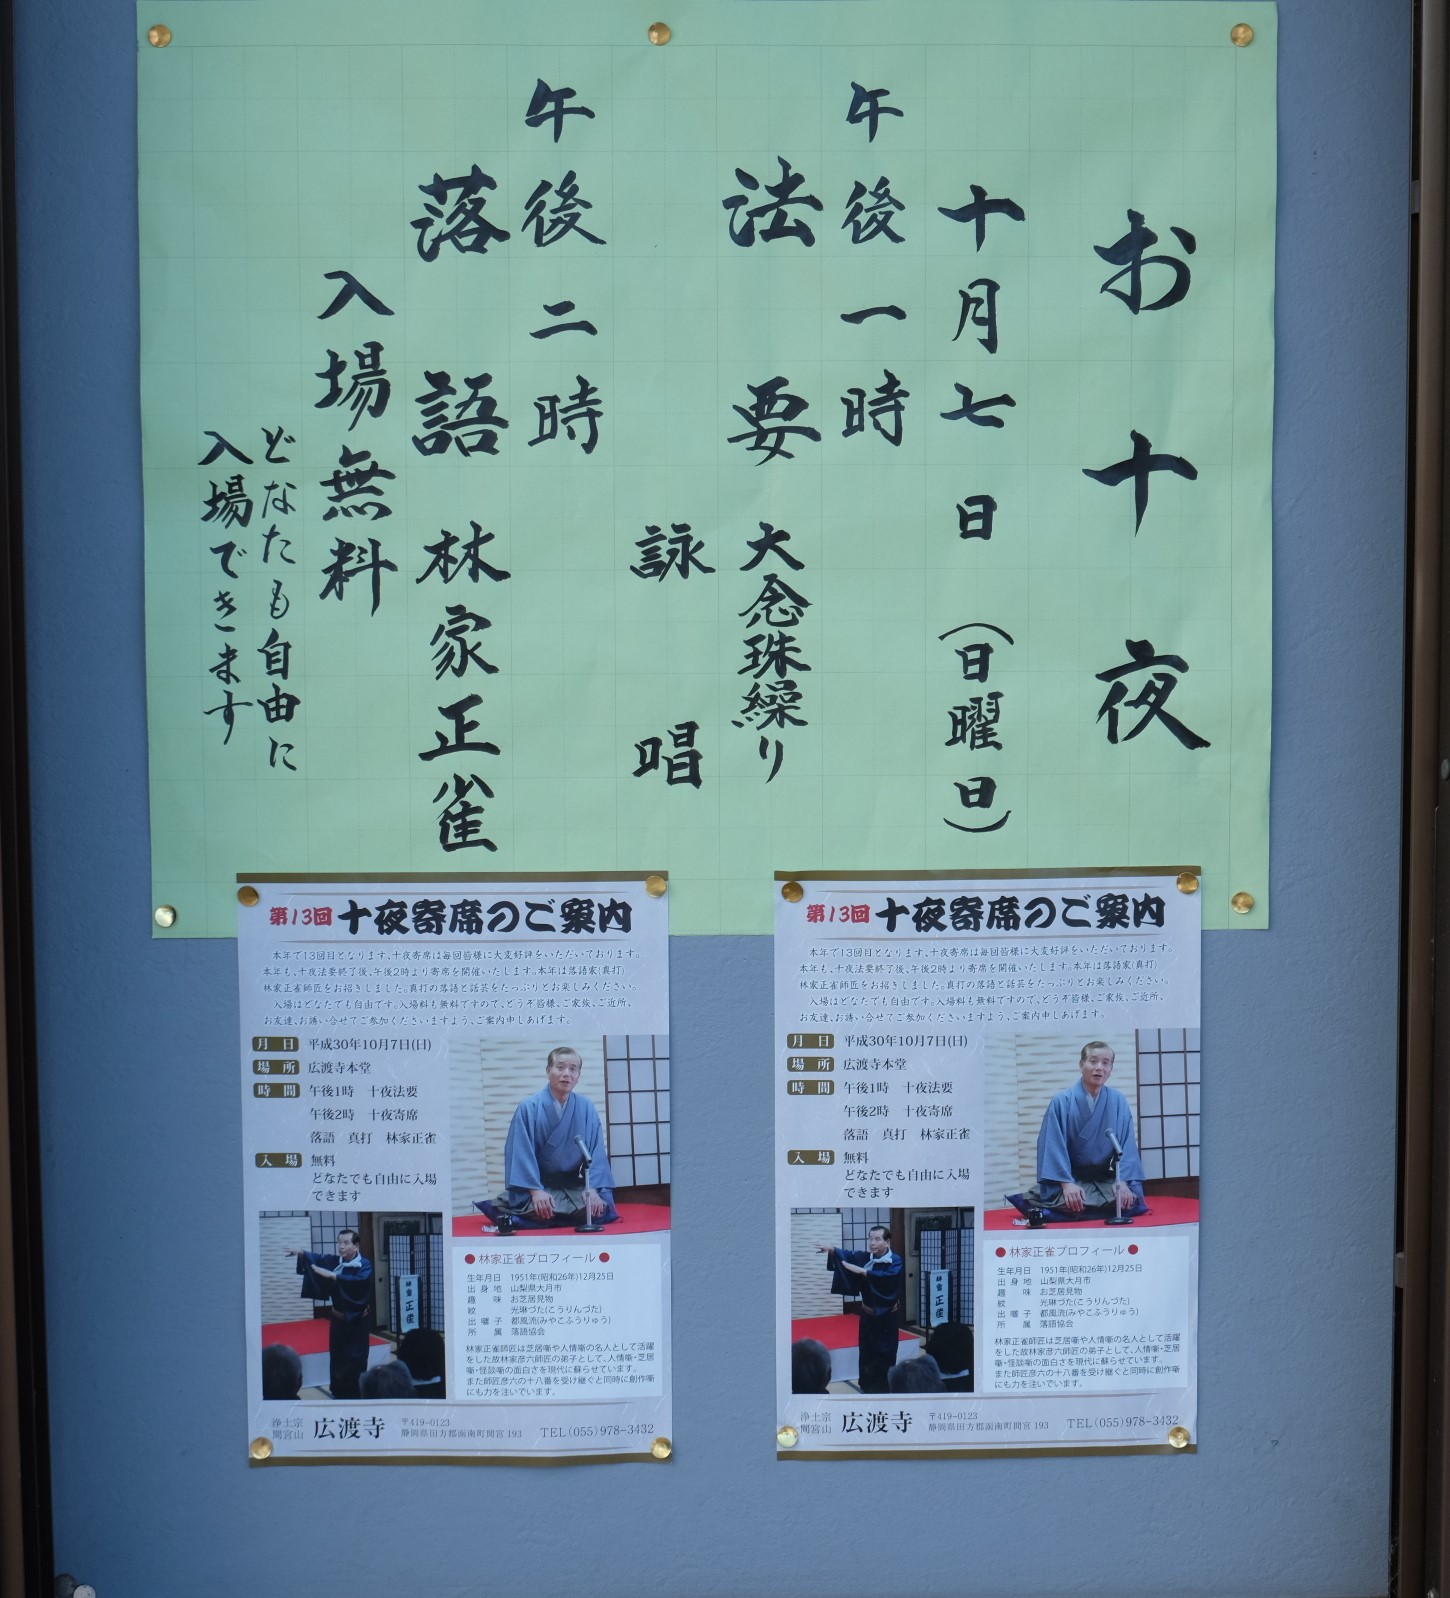 お十夜
十月七日（日曜日）
午後一時
法要 大念珠繰り
詠唱
午後二時
落語 林家正雀
入場無料
どなたも自由に
入場できます
第13回 十夜寄席のご案内
本年で13回目となります、十夜寄席は毎回皆様に大変好評をいただいております。
本年も、十夜法要終了後、午後2時より寄席を開催いたします。本年は落語家(真打)
林家正雀師匠をお招きしました。真打の落語と話芸をたっぷりとお楽しみください。
入場はどなたでも自由です。入場料も無料ですので、どうぞ皆様、ご家族、ご近所、
お友達、お誘い合せてご参加くださいますよう、ご案内申しあげます。
月日 平成30年10月7日(日)
場所 広渡寺本堂
時間 午後1時 十夜法要
午後2時 十夜寄席
落語 真打 林家正雀
入場 無料
どなたでも自由に入場
できます
●林家正雀プロフィール●
生年月日 1951年(昭和26年)12月25日
出身地 山梨県大月市
趣味 お芝居見物
紋 光琳づた(こうりんづた)
出囃子 都風流(みやこふうりゅう)
所属 落語協会
林家正雀師匠は芝居噺や人情噺の名人として活躍
をした故林家彦六師匠の弟子として、人情噺・芝居
噺・怪談噺の面白さを現代に蘇らせています。
また師匠彦六の十八番を受け継ぐと同時に創作噺
にも力を注いでいます。
浄土宗
間宮山 広渡寺
〒419-0123
静岡県田方郡函南町間宮193 TEL(055)978-3432
第13回 十夜寄席のご案内
本年で13回目となります、十夜寄席は毎回皆様に大変好評をいただいております。
本年も、十夜法要終了後、午後2時より寄席を開催いたします。本年は落語家(真打)
林家正雀師匠をお招きしました。真打の落語と話芸をたっぷりとお楽しみください。
入場はどなたでも自由です。入場料も無料ですので、どうぞ皆様、ご家族、ご近所、
お友達、お誘い合せてご参加くださいますよう、ご案内申しあげます。
月日 平成30年10月7日(日)
場所 広渡寺本堂
時間 午後1時 十夜法要
午後2時 十夜寄席
落語 真打 林家正雀
入場 無料
どなたでも自由に入場
できます
●林家正雀プロフィール●
生年月日 1951年(昭和26年)12月25日
出身地 山梨県大月市
趣味 お芝居見物
紋 光琳づた(こうりんづた)
出囃子 都風流(みやこふうりゅう)
所属 落語協会
林家正雀師匠は芝居噺や人情噺の名人として活躍
をした故林家彦六師匠の弟子として、人情噺・芝居
噺・怪談噺の面白さを現代に蘇らせています。
また師匠彦六の十八番を受け継ぐと同時に創作噺
にも力を注いでいます。
浄土宗
間宮山 広渡寺
〒419-0123
静岡県田方郡函南町間宮193 TEL(055)978-3432